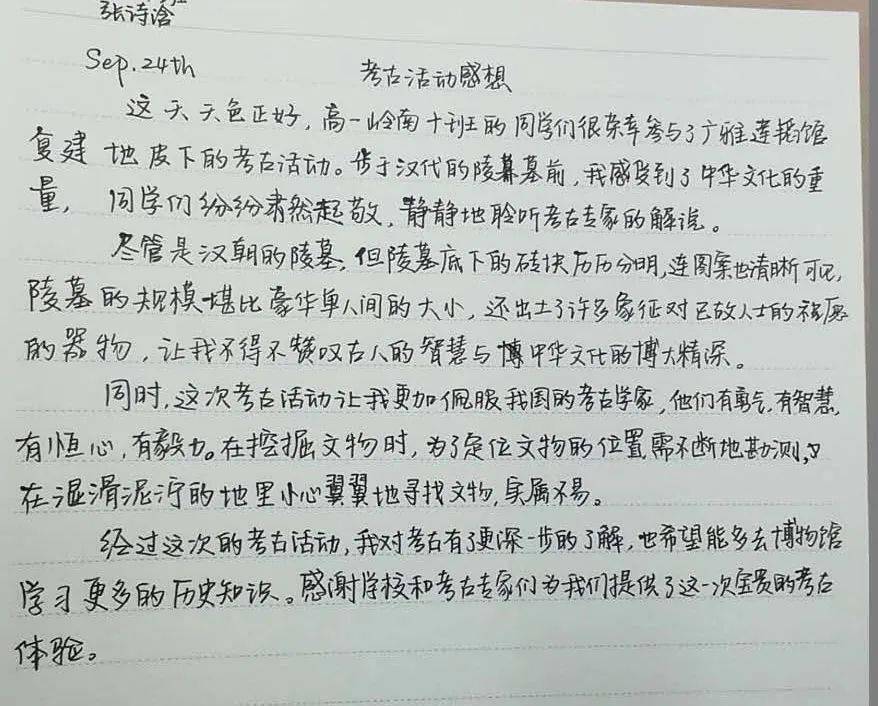 张诗涵
Sep.24th 考古活动感想
这天天色正好，高一岭南十班的同学们很荣幸参与了广雅莲韬馆
复建地皮下的考古活动。步于汉代的陵墓墓前，我感受到了中华文化的重
量，同学们纷纷肃然起敬，静静地聆听考古专家的解说。
尽管是汉朝的陵墓，但陵墓底下的砖块历历分明，连图案也清晰可见，
陵墓的规模堪比豪华单人间的大小，还出土了许多象征对已故人士的祝愿
的器物，让我不得不赞叹古人的智慧与博中华文化的博大精深。
同时，这次考古活动让我更加佩服我国的考古学家，他们有勇气，有智慧，
有恒心，有毅力。在挖掘文物时，为了定位文物的位置，需不断地勘测，又
在湿滑泥泞的地里小心翼翼地寻找文物，实属不易。
经过这次的考古活动，我对考古有了更深一步的了解，也希望能多去博物馆
学习更多的历史知识。感谢学校和考古专家们为我们提供了这一次宝贵的考古
体验。